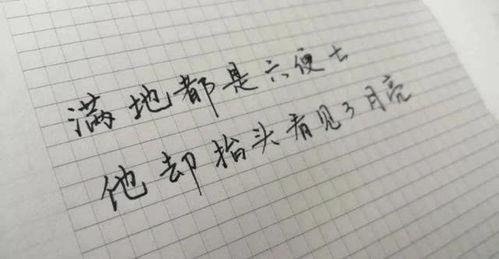 满地都是六便士
他却抬头看见了月亮